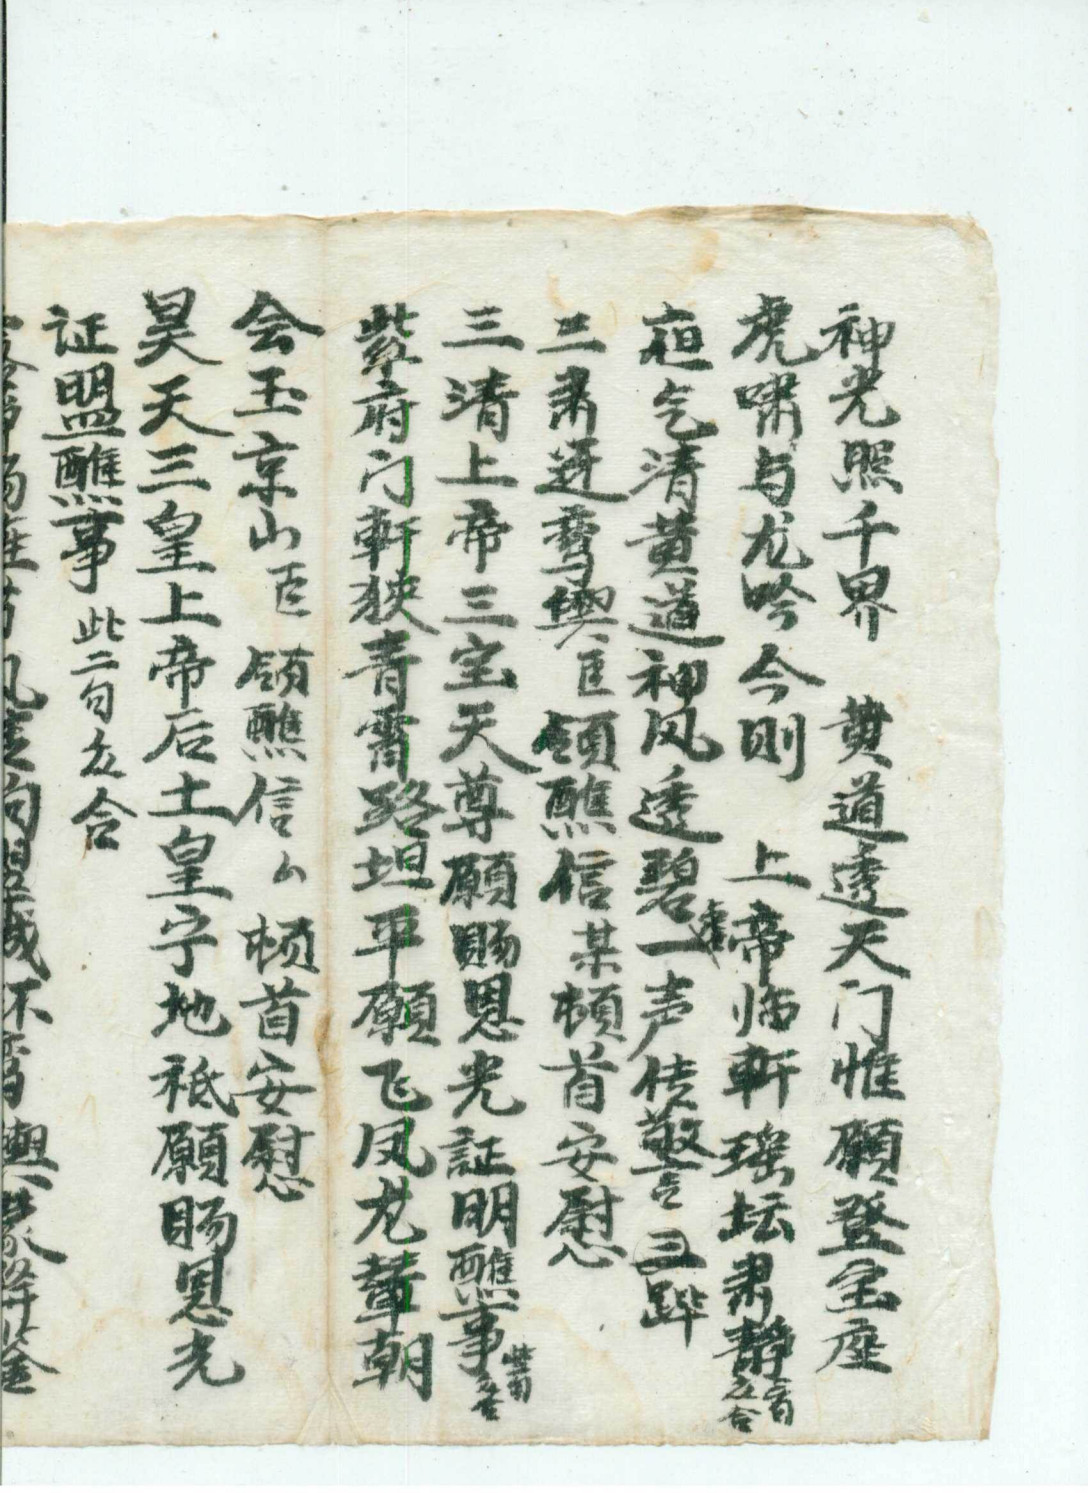 神光照千界　黄道透天门惟願登宝座
虎啸与龙吟今则　上帝临軒瑶坛肃静二句众合
夜乞清黄道神风透碧霄一声传警三跸
三肃迓鸾舆臣領醮信某頓首安慰
三清上帝三宝天尊願賜恩光証明醮事此二句众合
紫府门軒狭青霄路坦平願飞凤龙輦朝
会玉京山臣　領醮信厶頓首安慰
昊天三皇上帝后土皇宁地祗願賜恩光
证盟醮事此二句众合